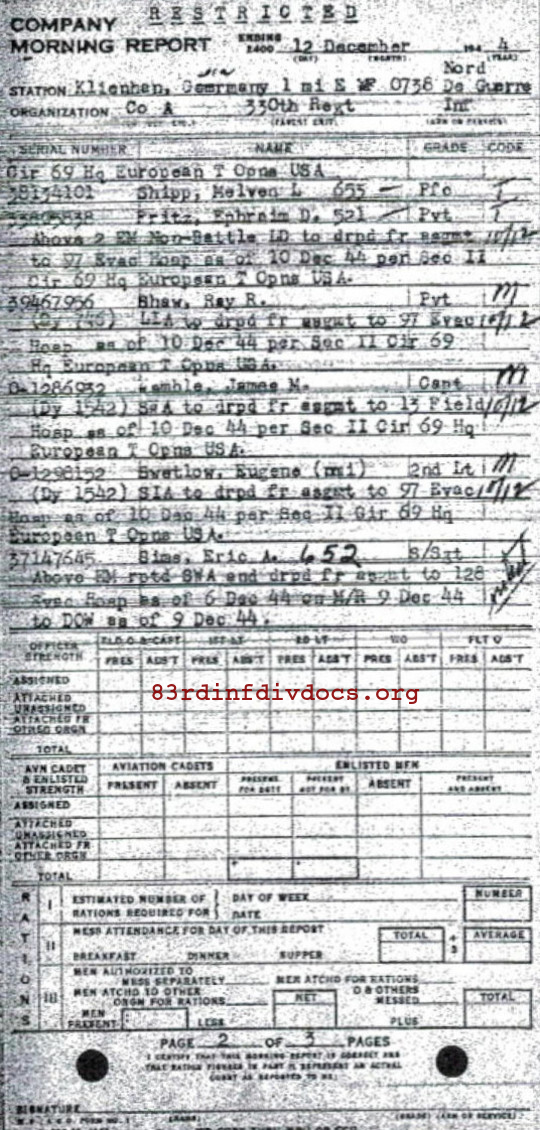 RESTRICTED
COMPANY
MORNING REPORT ENDING 2400 12 December 194 4
(DAY) (MONTH) (YEAR)
Nord
STATION Klienhan, Germany 1 mi E WF 0738 De Guerre
ORGANIZATION Co A 330th Regt Inf
(PARENT UNIT) (ARM OR SERVICE)
SERIAL NUMBER NAME GRADE CODE
Cir 69 Hq European T Opns USA
38134101 Shipp, Melven L 653 — Pfc T
Fritz, Ephraim D. 521 — Pvt T
Above 2 EM Non-Battle LD to drpd fr asgmt 10/12
to 97 Evac Hosp as of 10 Dec 44 per Sec II
Cir 69 Hq European T Opns USA.
39467956 Shaw, Ray R. Pvt M
(Dy 745) LIA to drpd fr asgmt to 97 Evac 10/12
Hosp as of 10 Dec 44 per Sec II Cir 69
Hq European T Opns USA.
O-1286932 Kemble, James M. Capt M
(Dy 1542) SWA to drpd fr asgmt to 13 Field 10/12
Hosp as of 10 Dec 44 per Sec II Cir 69 Hq
European T Opns USA.
O-1298152 Swetlow, Eugene (nmi) 2nd Lt M
(Dy 1542) SIA to drpd fr asgmt to 97 Evac 10/12
Hosp as of 10 Dec 44 per Sec II Cir 69 Hq
European T Opns USA.
37147645 Sims, Eric A. 652 S/Sgt
Above EM rptd SWA and drpd fr asgmt to 128
Evac Hosp as of 6 Dec 44 on M/R 9 Dec 44
to DOW as of 9 Dec 44.
OFFICER STRENGTH FLD O & CAPT 1ST LT 2D LT WO FLT O
PRES ABS'T PRES ABS'T PRES ABS'T PRES ABS'T PRES ABS'T
ASSIGNED
ATTACHED UNASSIGNED
ATTACHED FR OTHER ORGN
TOTAL
83rdinfdivdocs.org
AVN CADET & ENLISTED STRENGTH AVIATION CADETS ENLISTED MEN
PRESENT ABSENT PRESENT FOR DUTY PRESENT NOT FOR DY ABSENT PRESENT AND ABSENT
ASSIGNED
ATTACHED UNASSIGNED
ATTACHED FR OTHER ORGN
TOTAL
RATIONS
I ESTIMATED NUMBER OF RATIONS REQUIRED FOR } DAY OF WEEK NUMBER
DATE
II MESS ATTENDANCE FOR DAY OF THIS REPORT TOTAL ÷ 3 AVERAGE
BREAKFAST DINNER SUPPER
III MEN AUTHORIZED TO MESS SEPARATELY MEN ATCHD FOR RATIONS
MEN ATCHD TO OTHER ORGN FOR RATIONS NET O & OTHERS MESSED TOTAL
MEN PRESENT LESS PLUS
PAGE 2 OF 3 PAGES
I CERTIFY THAT THIS MORNING REPORT IS CORRECT AND
THAT RATION FIGURES IN PART II REPRESENT AN ACTUAL
COUNT AS REPORTED TO ME:
SIGNATURE
(NAME) (GRADE) (ARM OR SERVICE)